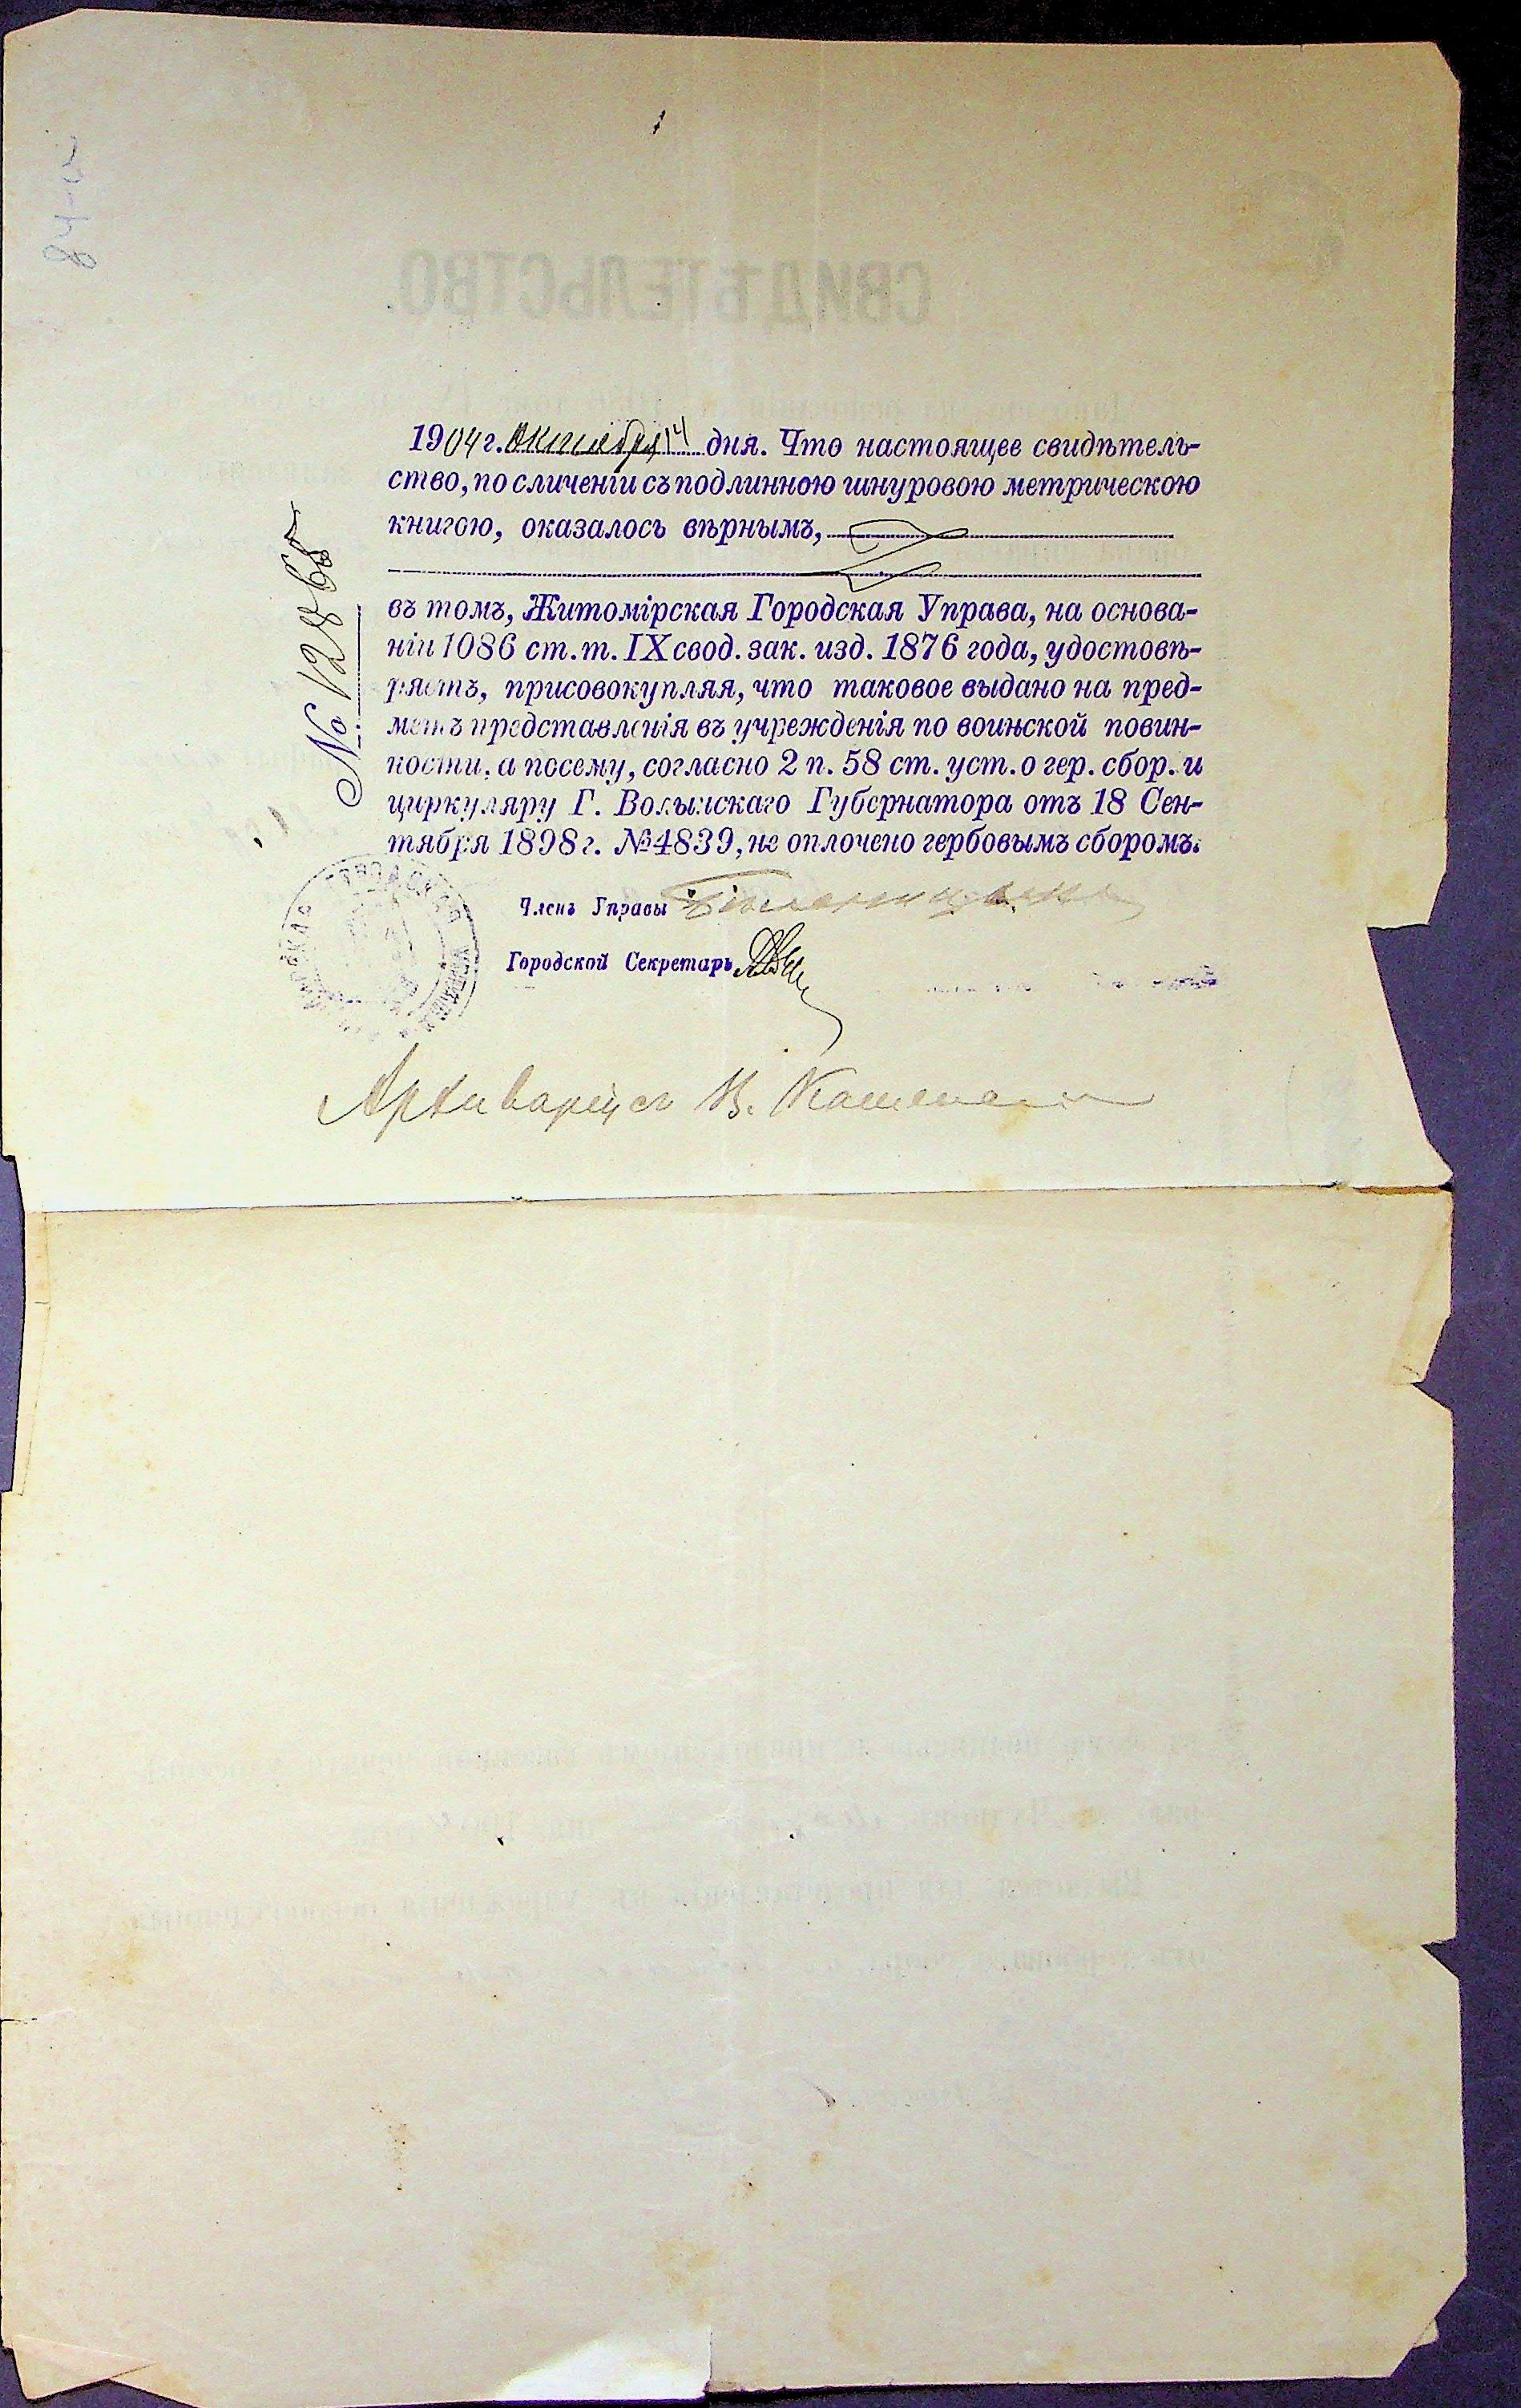 1904 г. Октября 14 дня. Что настоящее свидѣтель-
ство, по сличеніи съ подлинною шнуровою метрическою
книгою, оказалось вѣрнымъ,
въ томъ, Житомірская Городская Управа, на основа-
ніи 1086 ст. т. IX свод. зак. изд. 1876 года, удостовѣ-
ряетъ, присовокупляя, что таковое выдано на пред-
метъ представленія въ учрежденія по воинской повин-
ности, а посему, согласно 2 п. 58 ст. уст. о гер. сбор. и
циркуляру Г. Волынскаго Губернатора отъ 18 Сен-
тября 1898 г. №4839, не оплочено гербовымъ сборомъ.
№ 12868
Членъ Управы
Городской Секретарь
Архиваріусъ
СВИДѢТЕЛЬСТВО.